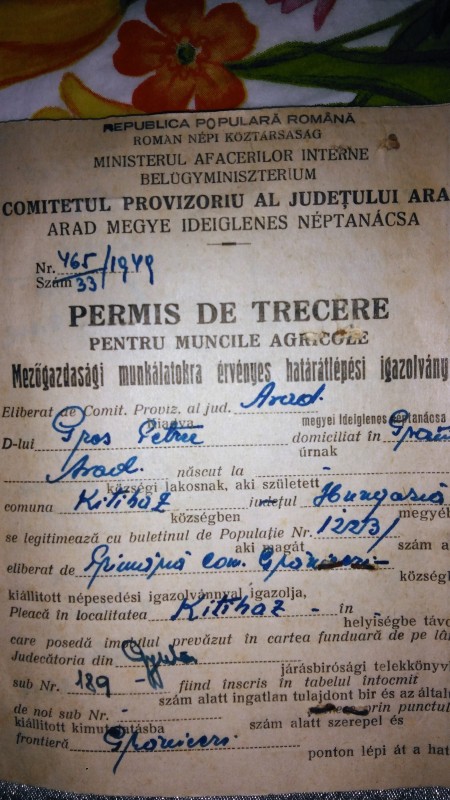 REPUBLICA POPULARĂ ROMÂNĂ
ROMÁN NÉPI KÖZTÁRSASÁG
MINISTERUL AFACERILOR INTERNE
BELÜGYMINISZTERIUM
COMITETUL PROVIZORIU AL JUDEȚULUI ARA
ARAD MEGYE IDEIGLENES NÉPTANÁCSA
Nr. 465/1949
Szám 33
PERMIS DE TRECERE
PENTRU MUNCILE AGRICOLE
Mezőgazdasági munkálatokra érvényes határátlépési igazolvány
Eliberat de Comit. Proviz. al jud. Arad.
Kiadva megyei ideiglenes néptanácsa
D-lui Petru domiciliat în
úrnak
Arad. născut la -
községi lakosnak, aki született
comuna Kitihaz județul Hungaria
községben megyéb
se legitimează cu buletinul de Populație Nr. 12231
aki magát szám a
eliberat de com.
községb
kiállított népesedési igazolvánnyal igazolja,
Pleacă în localitatea Kitihaz - în
helyiségbe távo
care posedă imobilul prevăzut în cartea funduară de pe lân
Judecătoria din Gyula
járásbirósági telekkönyv
sub Nr. 189 - fiind înscris în tabelul întocmit
szám alatt ingatlan tulajdont bir és az által
de noi sub Nr. - prin punctul
kiállított kimutatásba szám alatt szerepel és
frontieră
ponton lépi át a hat